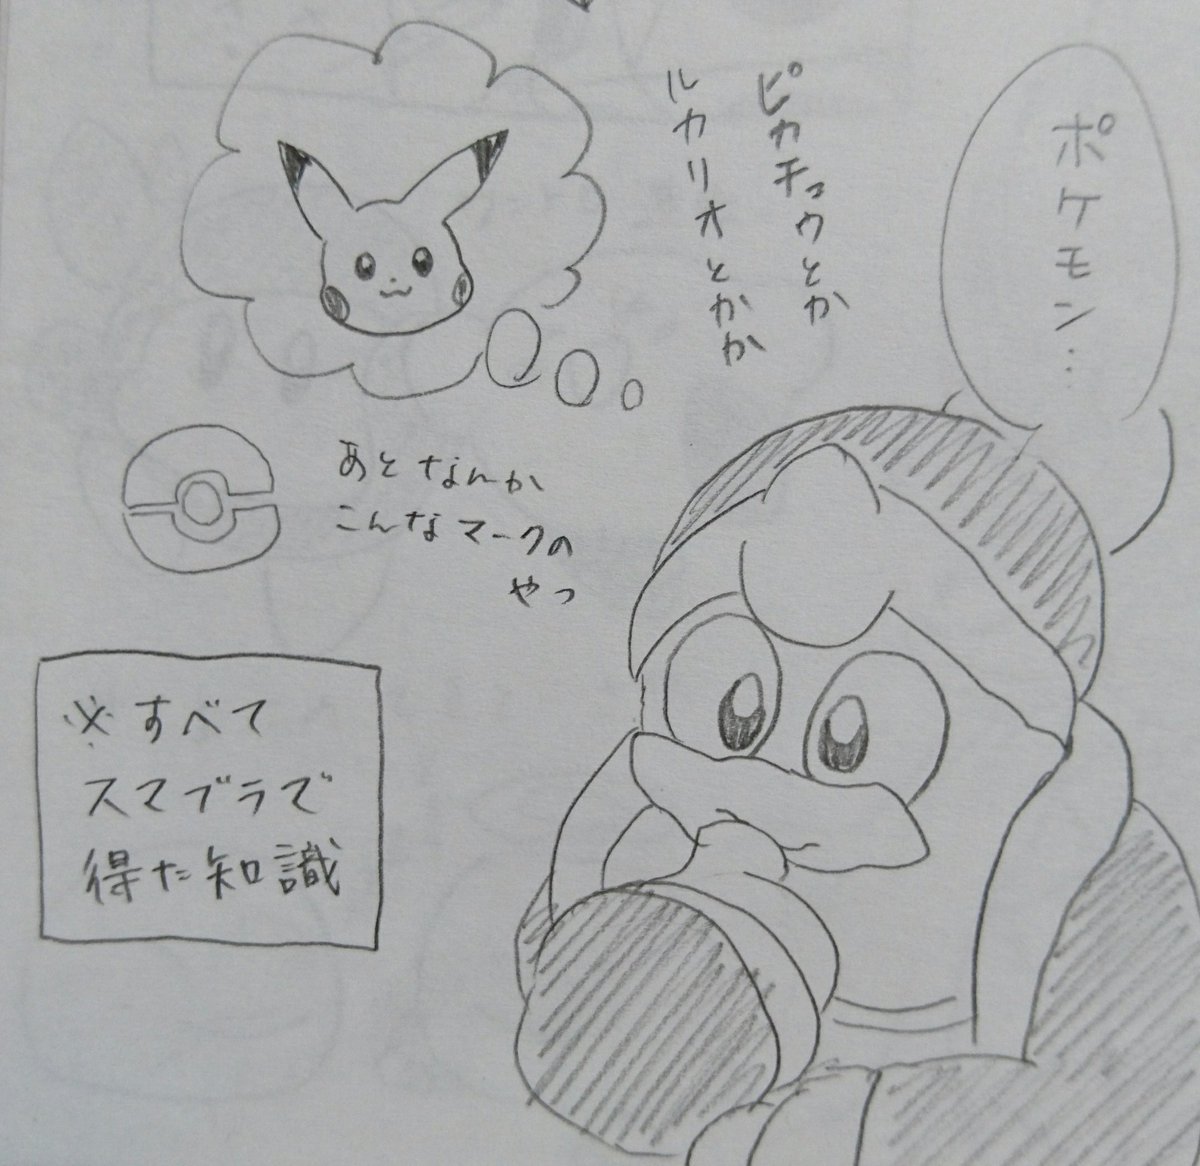 ポケモン…
ピカチュウとか
ルカリオとかか
あとなんか
こんなマークの
やつ
※すべて
スマブラで
得た知識